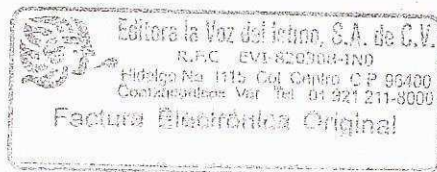 Editora la Voz del Istmo, S.A. de C.V.
R.F.C EVI-820308-1N0
Hidalgo No 1115 Col Centro C P 96400
Coatzacoalcos Ver Tel 01 921 211-8000
Factura Electrónica Original